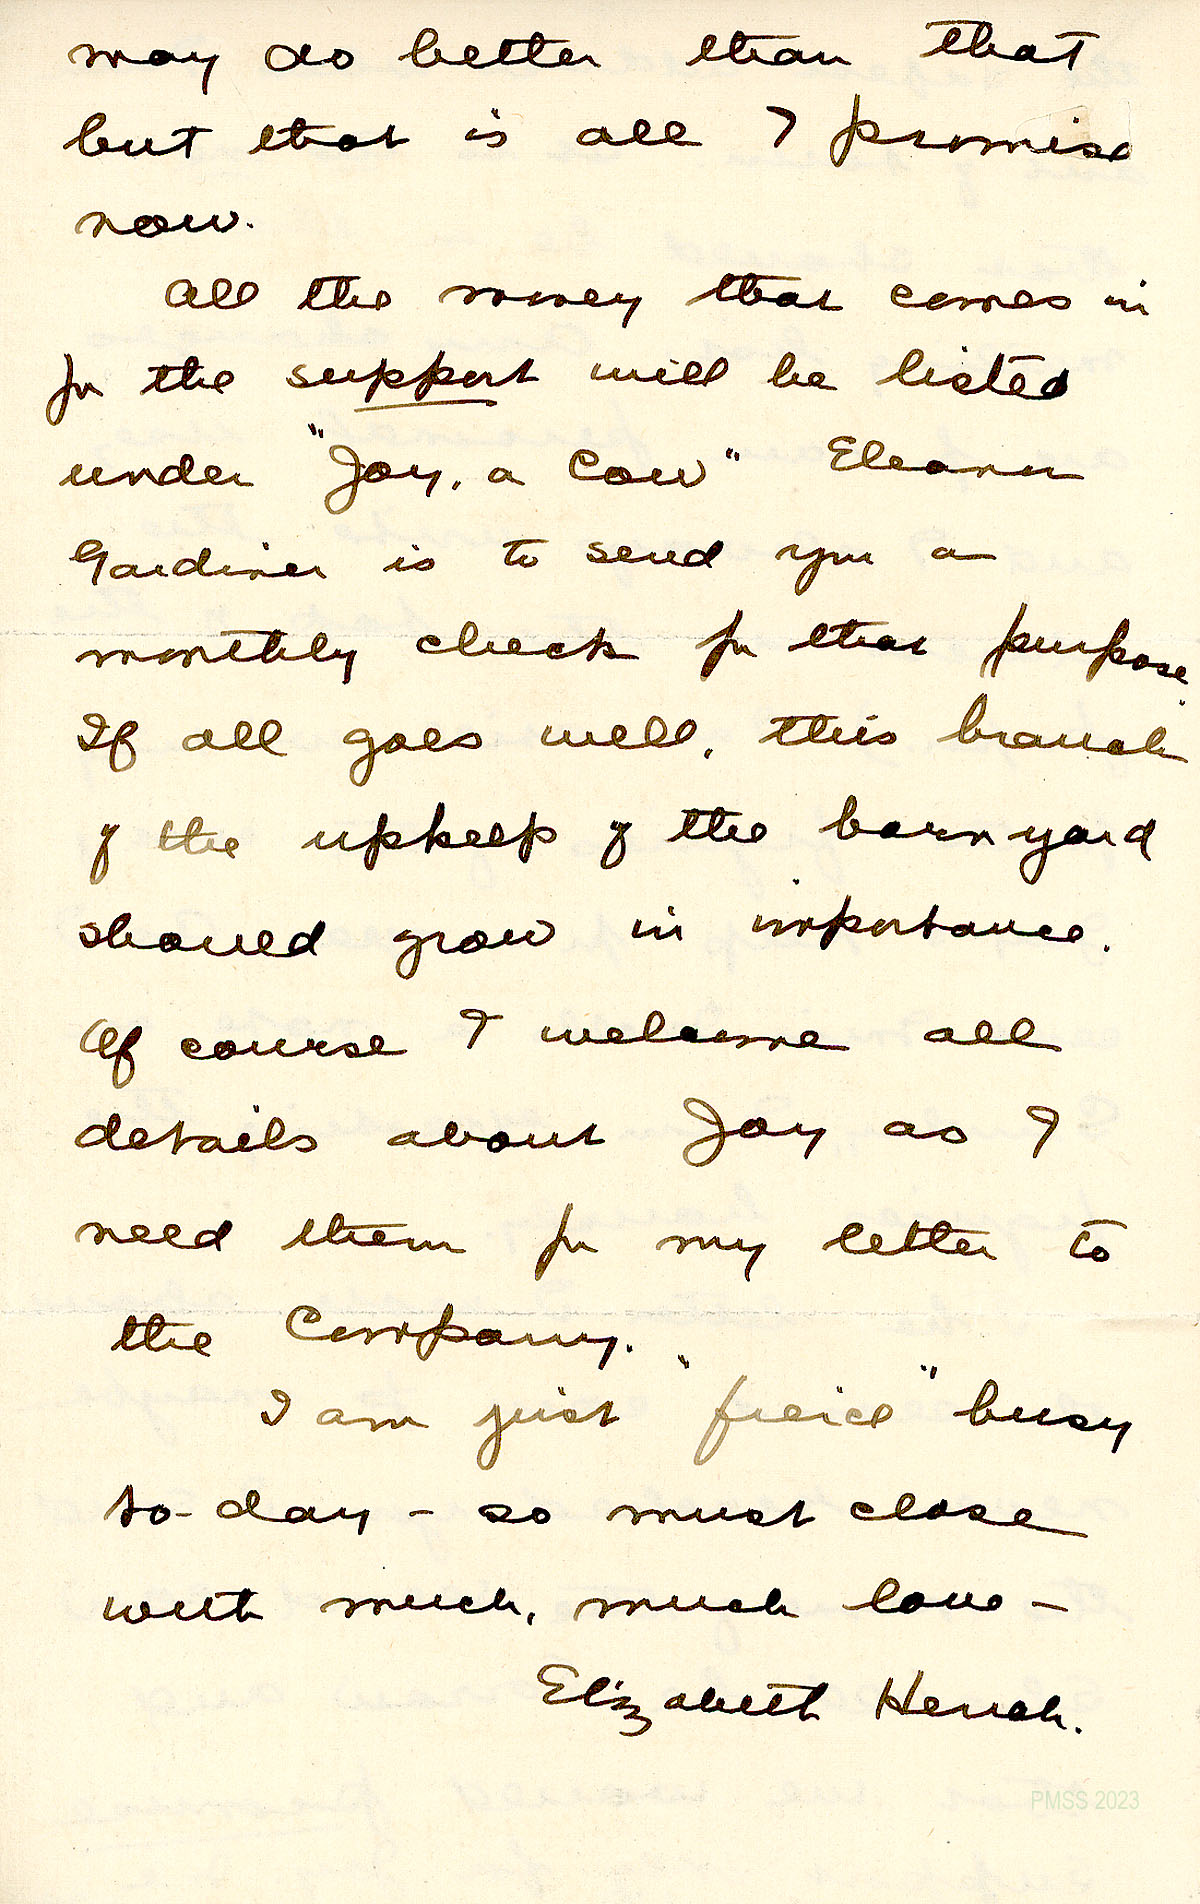 may do better than that
but that is all I promise
now.
All the money that comes in
for the support will be listed
under "Joy, a Cow" Eleanor
Gardiner is to send you a
monthly check for that purpose.
If all goes well, this branch
of the upkeep of the barn yard
should grow in importance.
Of course I welcome all
details about Joy as I
need them for my letter to
the Company.
I am just "fierce" busy
to-day - so must close
with much, much love -
Elizabeth Hench.
PMSS 2023